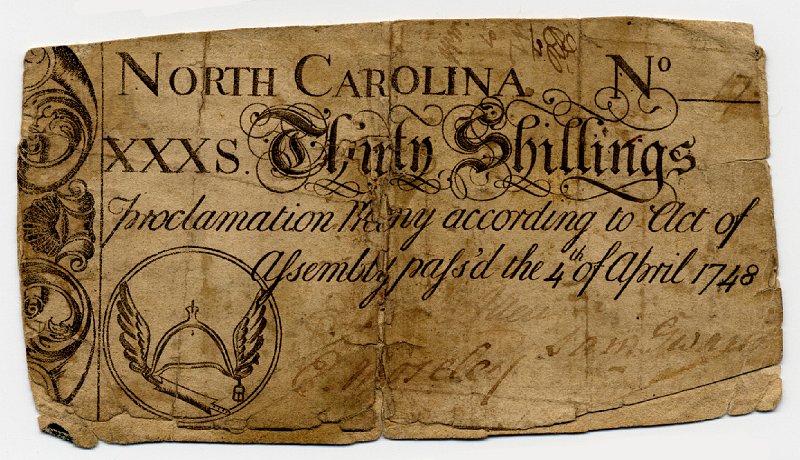 NORTH CAROLINA. No 17
XXXS. Thirty Shillings
Proclamation Mony according to Act of
Assembly pass'd the 4th of April 1748
E. Moseley Sam Swann